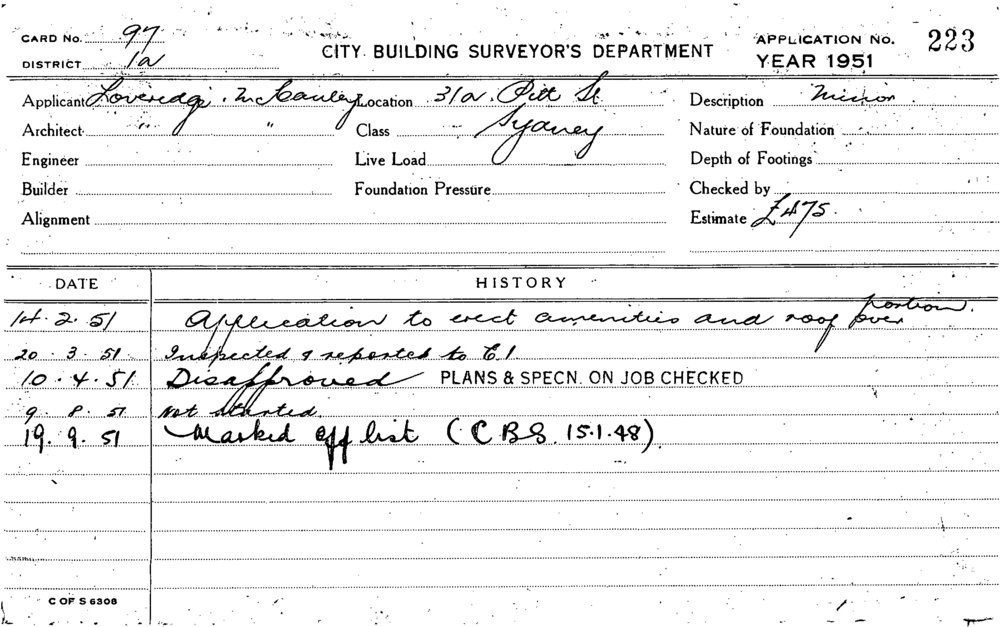 CARD No. 97
CITY BUILDING SURVEYOR'S DEPARTMENT
APPLICATION No. 223
DISTRICT 1a
YEAR 1951
Applicant Loveredge. McCauley Location 31a. Pitt St. Description Minor
Architect " " Class Sydney Nature of Foundation
Engineer Live Load Depth of Footings
Builder Foundation Pressure Checked by
Alignment Estimate £475.
DATE HISTORY
14.2.51 Application to erect amenities and roof over portion.
20.3.51 Inspected & reported to C.I.
10.4.51 Disapproved PLANS & SPECN. ON JOB CHECKED
9.8.51 Not started.
19.9.51 Marked off list (CBS. 15.1.48).
C OF S 6308